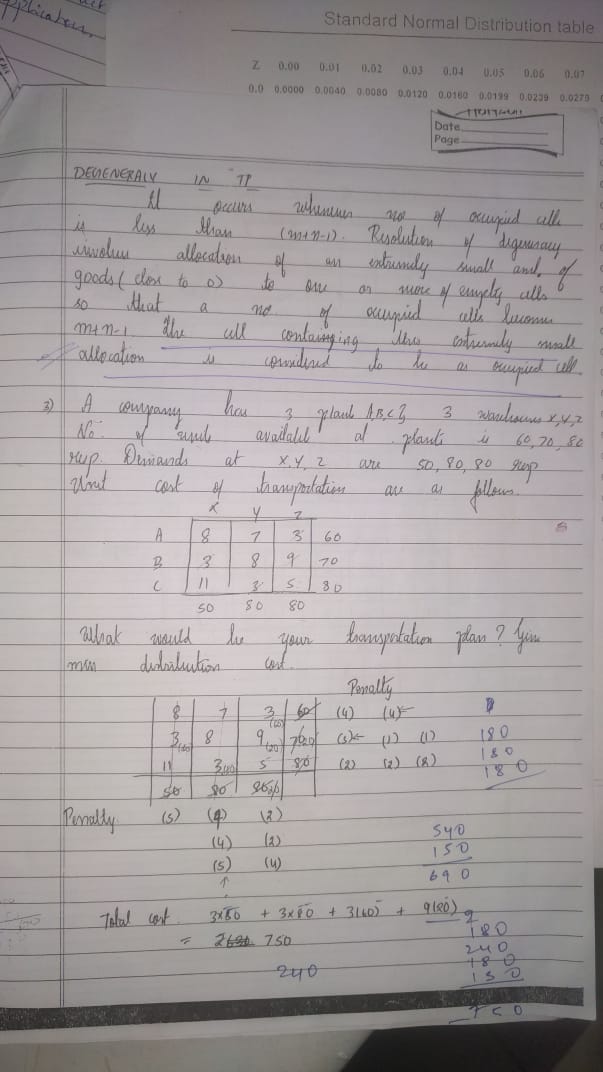 Standard Normal Distribution table
Z 0.00 0.01 0.02 0.03 0.04 0.05 0.06 0.07
0.0 0.0000 0.0040 0.0080 0.0120 0.0160 0.0199 0.0239 0.0279
Date
Page
DEGENERALY IN TP
It occurs whenever no of occupied cells
is less than (m+n-1). Resolution of degeneracy
involves allocation of an extremely small amt. of
goods (close to 0) to one or more of empty cells
so that a no of occupied cells become
m+n-1 The cell containging this extremely small
allocation is considered to be as occupied cell.
3) A company has 3 plants A,B,C & 3 warehouses X,Y,Z
No. of units available at plants is 60, 70, 80
resp. Demands at X, Y, Z are 50, 80, 80 resp
Unit cost of transportation are as follows.
X Y Z
A 8 7 3 60
B 3 8 9 70
C 11 3 5 80
50 80 80
What would be your transportation plan? Give
min distribution cost.
Penalty
8 7 3(60) 60 (4) (4)←
3(50) 8 9(20) 7020 (5)← (1) (1) 180
11 3(80) 5 80 (2) (2) (2) 180
50 80 8020 180
Penalty (5) (4) (2)
(4) (2) 540
(5) (4) 150
↑ 690
Total cost 3x50 + 3x80 + 3(60) + 9(20)
= 750
180
240
180
150
240
750